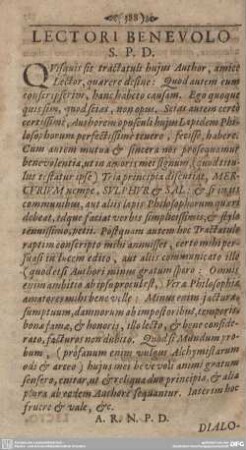 (588)
LECTORI BENEVOLO
S. P. D.
QVisquis sit tractatuli hujus Author, amice
Lector, quærere desine: Quod autem eum
conscripserim, hanc habeto causam. Ego quoque
quis sim, quod scias, non opus. Scias autem certò
certissimè, Authorem opusculi hujus Lapidem Philo-
sophorum perfectissimè tenere, fecisse, habere.
Cum autem mutua & sincera nos prosequamur
benevolentia, ut amoris mei signum (quod titu-
lus testatur ipse) Tria principia discutiat, MER-
CVRIVM nempe, SVLPHVR & SAL; & si
communibus, aut aliis lapis Philosophorum quæri
debeat, idque faciat verbis simplicissimis, & stylo
remississimo, petii. Postquam autem hoc Tractatulo
raptim conscripto mihi annuisset, certò mihi per-
suasi in lucem edito, aut aliis communicato illo
(quod etsi Authori minus gratum spero: Omnis
enim ambitio ab ipso procul est,) Veræ Philosophiæ
amatores mihi benevolle: Minus enim jacturæ,
sumptuum, damnorum ab impostoribus, temporis,
bonæ famæ, & honoris, illo lecto, & bene conside-
rato, facturos non dubito. Quod si Mundum pro-
bum, (profanum enim vulgus Alchymistarum
odi & arceo) hujus mei benevoli animi gratum
sensero, enitar, ut & reliqua duo principia, & alia
plura ab eodem Authore sequantur. Interim hoc
fruere & vale, &c.
A. R. N. P. D.
DIALO-